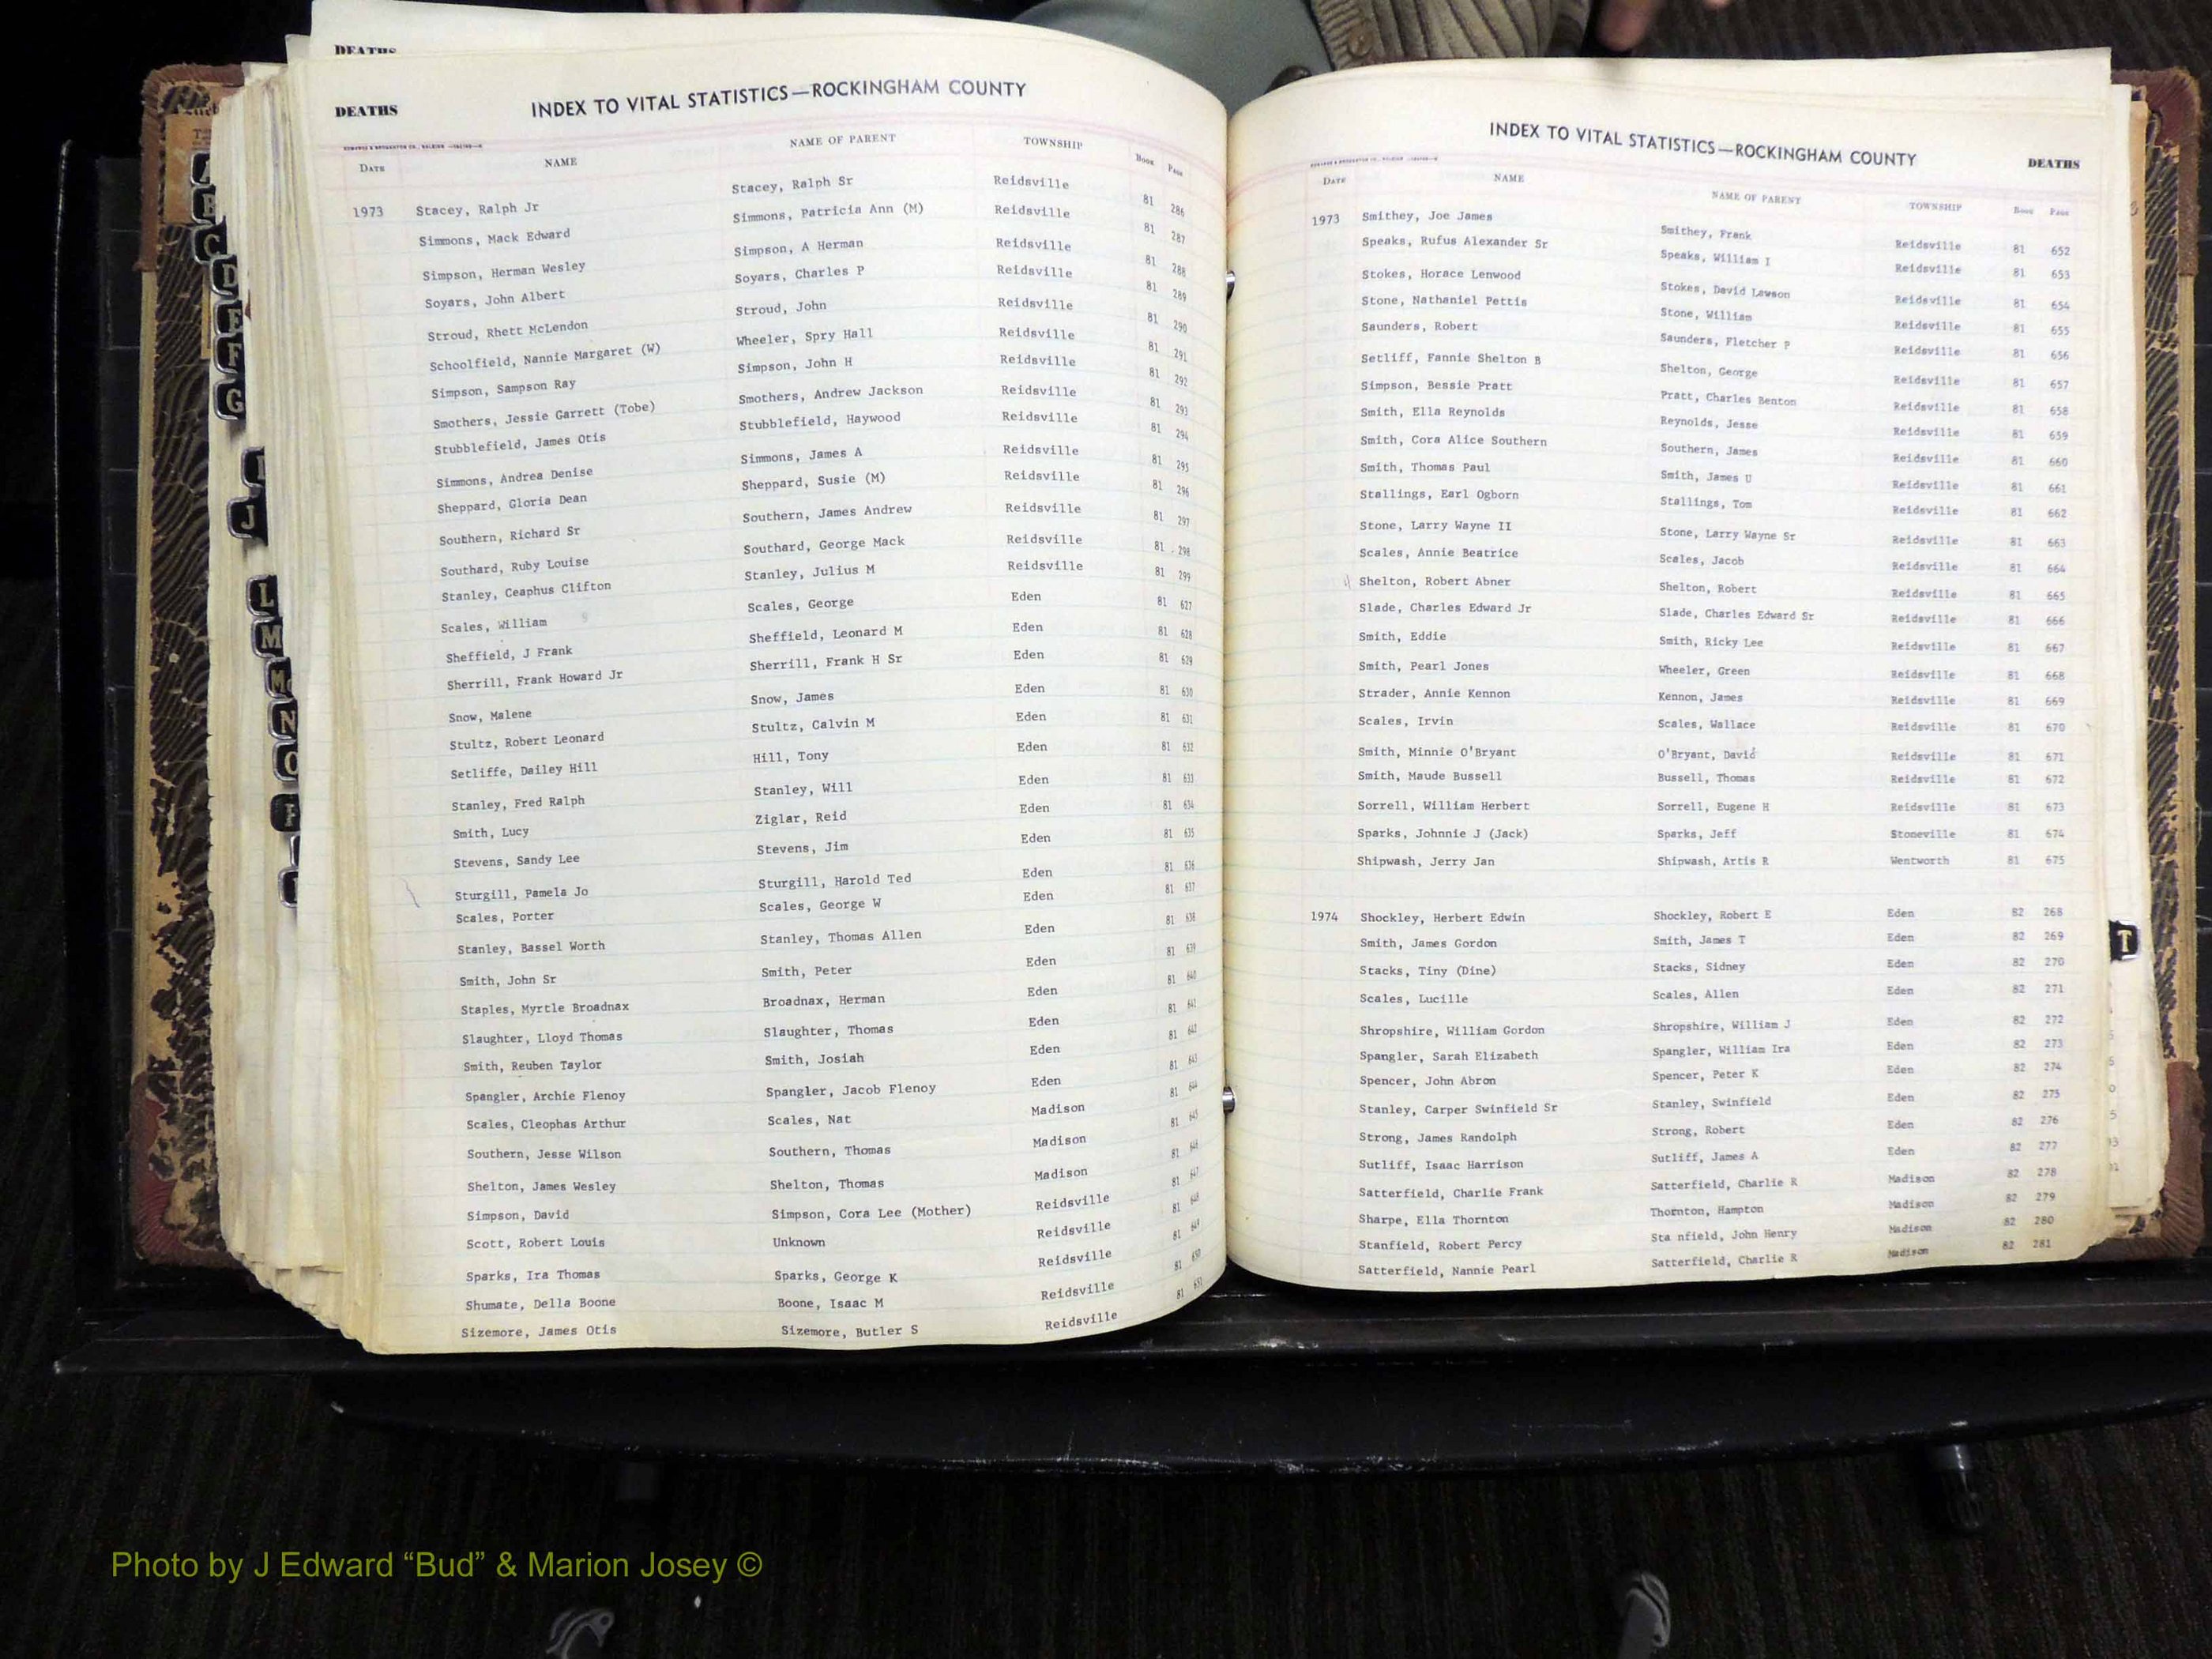 DEATHS
DEATHS
INDEX TO VITAL STATISTICS—ROCKINGHAM COUNTY
DATE NAME NAME OF PARENT TOWNSHIP BOOK PAGE
1973 Stacey, Ralph Jr Stacey, Ralph Sr Reidsville 81 286
Simmons, Mack Edward Simmons, Patricia Ann (M) Reidsville 81 287
Simpson, Herman Wesley Simpson, A Herman Reidsville 81 288
Soyars, John Albert Soyars, Charles P Reidsville 81 289
Stroud, Rhett McLendon Stroud, John Reidsville 81 290
Schoolfield, Nannie Margaret (W) Wheeler, Spry Hall Reidsville 81 291
Simpson, Sampson Ray Simpson, John H Reidsville 81 292
Smothers, Jessie Garrett (Tobe) Smothers, Andrew Jackson Reidsville 81 293
Stubblefield, James Otis Stubblefield, Haywood Reidsville 81 294
Simmons, Andrea Denise Simmons, James A Reidsville 81 295
Sheppard, Gloria Dean Sheppard, Susie (M) Reidsville 81 296
Southern, Richard Sr Southern, James Andrew Reidsville 81 297
Southard, Ruby Louise Southard, George Mack Reidsville 81 298
Stanley, Ceaphus Clifton Stanley, Julius M Reidsville 81 299
Scales, William Scales, George Eden 81 627
Sheffield, J Frank Sheffield, Leonard M Eden 81 628
Sherrill, Frank Howard Jr Sherrill, Frank H Sr Eden 81 629
Snow, Malene Snow, James Eden 81 630
Stultz, Robert Leonard Stultz, Calvin M Eden 81 631
Setliffe, Dailey Hill Hill, Tony Eden 81 632
Stanley, Fred Ralph Stanley, Will Eden 81 633
Smith, Lucy Ziglar, Reid Eden 81 634
Stevens, Sandy Lee Stevens, Jim Eden 81 635
Sturgill, Pamela Jo Sturgill, Harold Ted Eden 81 636
Scales, Porter Scales, George W Eden 81 637
Stanley, Bassel Worth Stanley, Thomas Allen Eden 81 638
Smith, John Sr Smith, Peter Eden 81 639
Staples, Myrtle Broadnax Broadnax, Herman Eden 81 640
Slaughter, Lloyd Thomas Slaughter, Thomas Eden 81 641
Smith, Reuben Taylor Smith, Josiah Eden 81 642
Spangler, Archie Flenoy Spangler, Jacob Flenoy Eden 81 643
Scales, Cleophas Arthur Scales, Nat Madison 81 644
Southern, Jesse Wilson Southern, Thomas Madison 81 645
Shelton, James Wesley Shelton, Thomas Madison 81 646
Simpson, David Simpson, Cora Lee (Mother) Reidsville 81 647
Scott, Robert Louis Unknown Reidsville 81 648
Sparks, Ira Thomas Sparks, George K Reidsville 81 649
Shumate, Della Boone Boone, Isaac M Reidsville 81 650
Sizemore, James Otis Sizemore, Butler S Reidsville 81 651
INDEX TO VITAL STATISTICS—ROCKINGHAM COUNTY
DEATHS
DATE NAME NAME OF PARENT TOWNSHIP Book Page
1973 Smithey, Joe James Smithey, Frank Reidsville 81 652
Speaks, Rufus Alexander Sr Speaks, William I Reidsville 81 653
Stokes, Horace Lenwood Stokes, David Lawson Reidsville 81 654
Stone, Nathaniel Pettis Stone, William Reidsville 81 655
Saunders, Robert Saunders, Fletcher P Reidsville 81 656
Setliff, Fannie Shelton B Shelton, George Reidsville 81 657
Simpson, Bessie Pratt Pratt, Charles Benton Reidsville 81 658
Smith, Ella Reynolds Reynolds, Jesse Reidsville 81 659
Smith, Cora Alice Southern Southern, James Reidsville 81 660
Smith, Thomas Paul Smith, James U Reidsville 81 661
Stallings, Earl Ogborn Stallings, Tom Reidsville 81 662
Stone, Larry Wayne II Stone, Larry Wayne Sr Reidsville 81 663
Scales, Annie Beatrice Scales, Jacob Reidsville 81 664
Shelton, Robert Abner Shelton, Robert Reidsville 81 665
Slade, Charles Edward Jr Slade, Charles Edward Sr Reidsville 81 666
Smith, Eddie Smith, Ricky Lee Reidsville 81 667
Smith, Pearl Jones Wheeler, Green Reidsville 81 668
Strader, Annie Kennon Kennon, James Reidsville 81 669
Scales, Irvin Scales, Wallace Reidsville 81 670
Smith, Minnie O'Bryant O'Bryant, David Reidsville 81 671
Smith, Maude Bussell Bussell, Thomas Reidsville 81 672
Sorrell, William Herbert Sorrell, Eugene H Reidsville 81 673
Sparks, Johnnie J (Jack) Sparks, Jeff Stoneville 81 674
Shipwash, Jerry Jan Shipwash, Artis R Wentworth 81 675
1974 Shockley, Herbert Edwin Shockley, Robert E Eden 82 268
Smith, James Gordon Smith, James T Eden 82 269
Stacks, Tiny (Dine) Stacks, Sidney Eden 82 270
Scales, Lucille Scales, Allen Eden 82 271
Shropshire, William Gordon Shropshire, William J Eden 82 272
Spangler, Sarah Elizabeth Spangler, William Ira Eden 82 273
Spencer, John Abron Spencer, Peter K Eden 82 274
Stanley, Carper Swinfield Sr Stanley, Swinfield Eden 82 275
Strong, James Randolph Strong, Robert Eden 82 276
Sutliff, Isaac Harrison Sutliff, James A Eden 82 277
Satterfield, Charlie Frank Satterfield, Charlie R Madison 82 278
Sharpe, Ella Thornton Thornton, Hampton Madison 82 279
Stanfield, Robert Percy Sta nfield, John Henry Madison 82 280
Satterfield, Nannie Pearl Satterfield, Charlie R Madison 82 281
A
B
C
D
E
F
G
I
J
L
M
Mc
N
O
P
T
Photo by J Edward “Bud” & Marion Josey ©